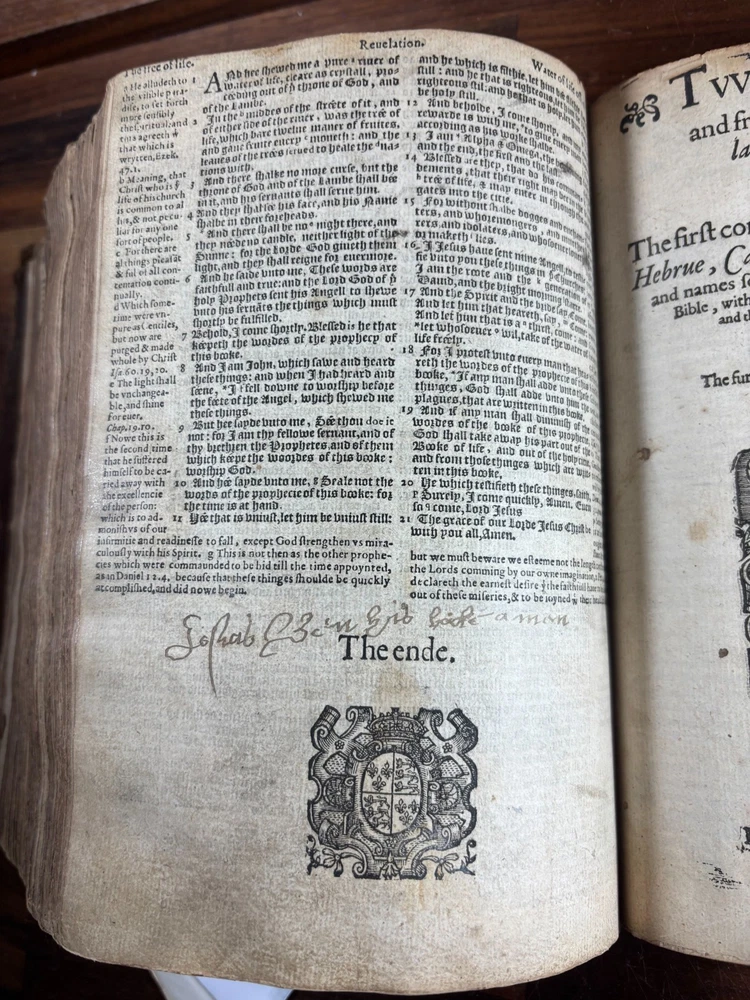 Reuelation.
The tree of life.
Water of life
a He alludeth to
the visible para-
dise, to set forth
more sensibly
the spirituall, and
this agreeth wͭ
that which is
written, Ezek.
47.1.
b Meaning, that
Christ who is yͤ
life of his church
is common to al
his, & not pecu-
liar for any one
sort of people.
c For there are
al things pleasāt
& ful of all con-
tentation conti-
nually.
d Which some-
time were vn-
pure as Gentiles,
but now are
purged & made
whole by Christ
Isa. 60.19,20.
e The light shall
be vnchangea-
ble, and shine
for euer.
Chap. 19.10.
f Nowe this is
the second time
that he suffered
himself to be ca-
ried away with
the excellencie
of the person:
which is to ad-
monish vs of our
infirmitie and readinesse to fall, except God strengthen vs mira-
culously with his Spirit. g This is not then as the other prophe-
cies which were commaunded to be hid till the time appoynted,
as in Daniel 12.4. because that these things shoulde be quickly
accomplished, and did nowe begin.
1 And hee shewed me a pure riuer of
water of life, cleare as crystall, pro-
ceeding out of yͤ throne of God, and
of the Lambe.
2 In the middes of the streete of it, and
of either side of the riuer, was the tree of
life, which bare twelue maner of fruites,
and gaue fruite euery moneth: and the
leaues of the tree serued to heale the na-
tions with.
3 And there shalbe no more curse, but the
throne of God and of the Lambe shall be
in it, and his seruants shall serue him.
4 And they shall see his face, and his Name
shalbe in their foreheads.
5 And there shall be no night there, and
they neede no candle, neither light of the
Sunne: for the Lorde God giueth them
light, and they shall reigne for euermore.
6 And he saide vnto me, These words are
faithfull and true: and the Lord God of yͤ
holy Prophets sent his Angell to shewe
vnto his seruāts the things which must
shortly be fulfilled.
7 Behold, I come shortly. Blessed is he that
keepeth the wordes of the prophecy of
this booke.
8 And I am John, which sawe and heard
these things: and when I had heard and
seene, *I fell downe to worship before
the feete of the Angel, which shewed me
these things.
9 But hee sayde vnto me, See thou doe it
not: for I am thy fellowe seruant, and of
thy brethren the Prophetes, and of them
which keepe the woordes of this booke:
worship God.
10 And he sayde vnto me, g Seale not the
words of the prophecie of this booke: for
the time is at hand.
11 Hee that is vniust, let him be vniust still:
and he which is filthie, let him be
still: and he that is righteous, let
righteous stil: and he that is holy, let
be holy still.
12 And beholde, I come shortly, and
rewarde is with me, *to giue euery
according as his worke shalbe.
13 I am Alpha & Omega, the
and the end, the first and the last.
14 Blessed are they, that do his comman-
dements, that their right may
tree of life, & may enter in through the
gates into the citie.
15 For without shalbe dogges and enchan-
ters, and whoremongers, and
rers, and idolaters, and whosoeuer
or maketh lies.
16 I Iesus haue sent mine Angel, to
fie vnto you these things in yͤ Churches:
I am the roote and the generation
Dauid, and the bright morning starre.
17 And the Spirit and the bride say, Come.
And let him that heareth, say, Come:
And let him that is a thirst, come: and
*let whosoeuer wil, take of the water of
life freely.
18 For I protest vnto euery man that
reth the wordes of the prophecie of this
booke, *If any man shall adde vnto these
thinges, God shall adde vnto him the
plagues, that are written in this booke.
19 And if any man shall diminish of the
wordes of the booke of this prophecie,
God shall take away his part out of the
Booke of life, and out of the holy citie,
and from those thinges which are writ-
ten in this booke.
20 He which testifieth these things, saith,
Surely, I come quickly, Amen. Euen
so come, Lord Jesus
21 The grace of our Lorde Jesus Christ be
with you all, Amen.
but we must beware we esteeme not the length
the Lords comming by our owne imagination.
declareth the earnest desire yͭ the faithful haue
out of these miseries, & to be ioyned wͭ their
Josiah his booke amen
The ende.
TW
and fr
la
The first co
Hebrue, Ca
and names
Bible, with
and
The fur